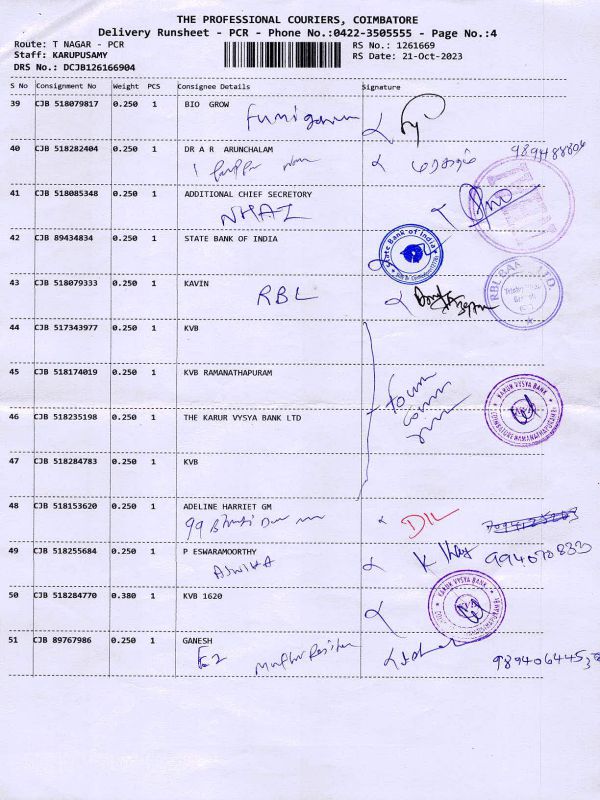 THE PROFESSIONAL COURIERS, COIMBATORE
Delivery Runsheet - PCR - Phone No.:0422-3505555 - Page No.:4
Route: T NAGAR - PCR RS No.: 1261669
Staff: KARUPUSAMY RS Date: 21-Oct-2023
DRS No.: DCJB126166904
S No Consignment No Weight PCS Consignee Details Signature
39 CJB 518079817 0.250 1 BIO GROW
40 CJB 518282404 0.250 1 DR A R ARUNCHALAM
41 CJB 518085348 0.250 1 ADDITIONAL CHIEF SECRETORY
NHAI
42 CJB 89434834 0.250 1 STATE BANK OF INDIA
State Bank of India
43 CJB 518079333 0.250 1 KAVIN
RBL
RBL BANK LTD.
44 CJB 517343977 0.250 1 KVB
45 CJB 518174019 0.250 1 KVB RAMANATHAPURAM
KARUR VYSYA BANK
46 CJB 518235198 0.250 1 THE KARUR VYSYA BANK LTD
47 CJB 518284783 0.250 1 KVB
48 CJB 518153620 0.250 1 ADELINE HARRIET GM
DIL
49 CJB 518255684 0.250 1 P ESWARAMOORTHY
50 CJB 518284770 0.380 1 KVB 1620
KARUR VYSYA BANK
51 CJB 89767986 0.250 1 GANESH